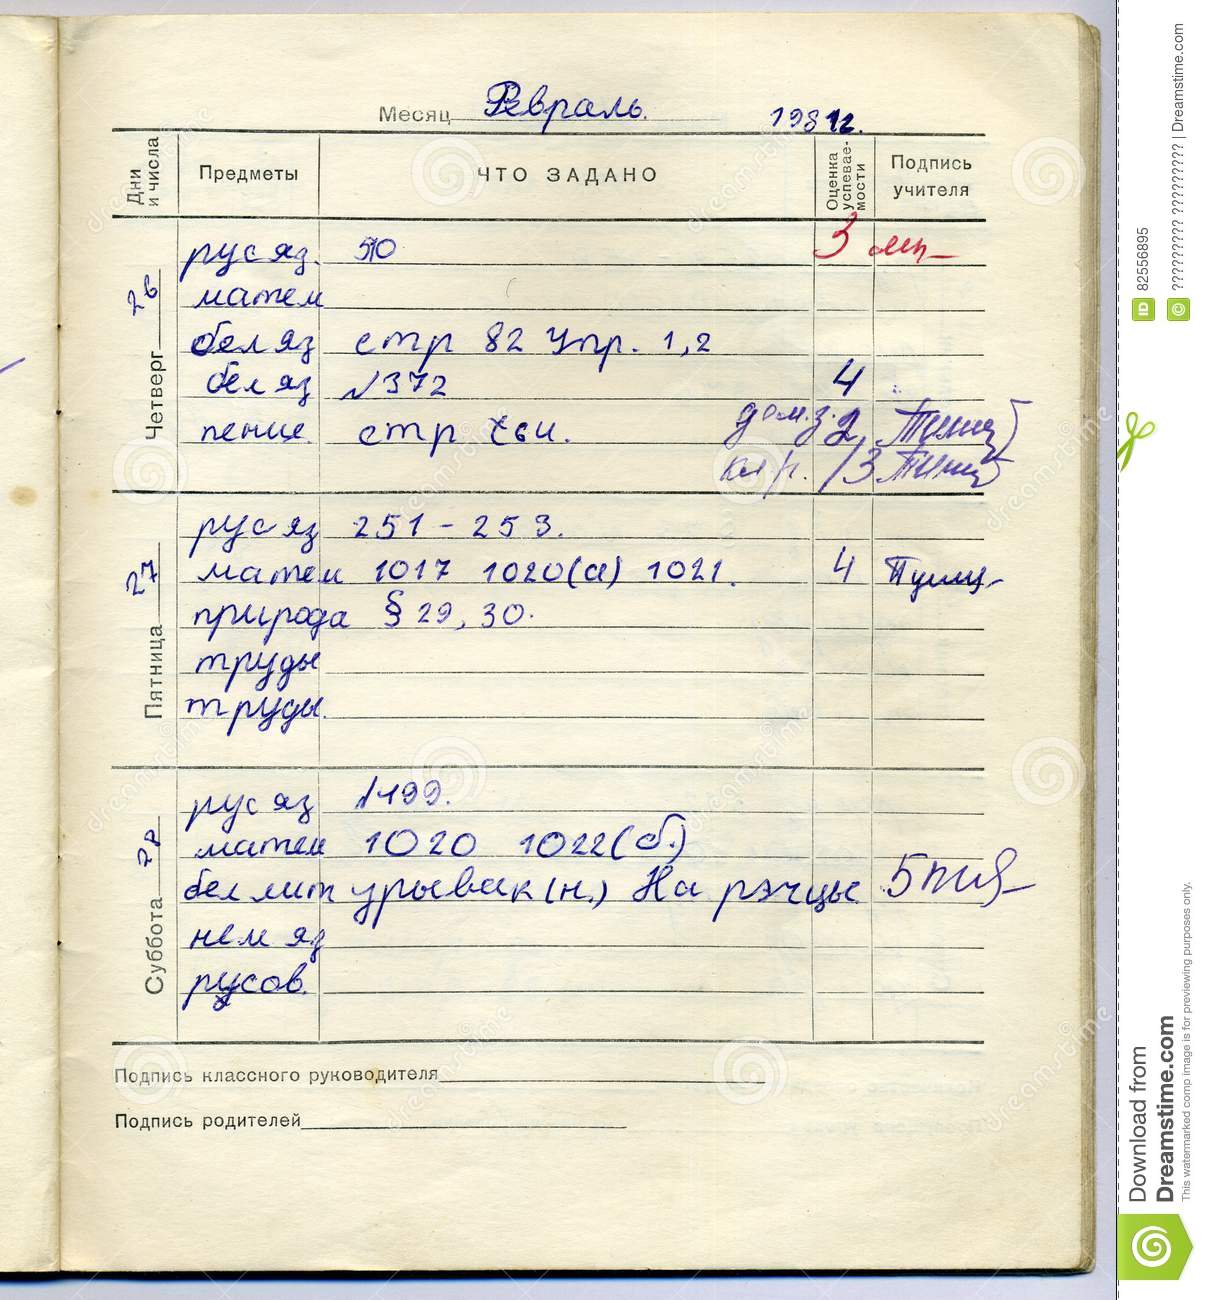 Месяц Февраль. 1981г.
Дни и числа Предметы ЧТО ЗАДАНО Оценка успевае- мости Подпись учителя
Четверг 26
рус яз. 510 3
матем
бел яз стр 82 упр. 1,2
бел яз №372 4
пение. стр дом.з. 2
кл р. 3
Пятница 27
рус яз 251 - 253.
матем 1017 1020(а) 1021. 4
природа § 29, 30.
труды
труды.
Суббота 28
рус яз 199.
матем 1020 1022(б.)
бел лит урывак (н.) На рэчцы 5
нем яз
рисов.
Подпись классного руководителя
Подпись родителей
dreamstime
82556895
ID
© ?????????? ?????????? | Dreamstime.com
Download from
Dreamstime.com
This watermarked comp image is for previewing purposes only.